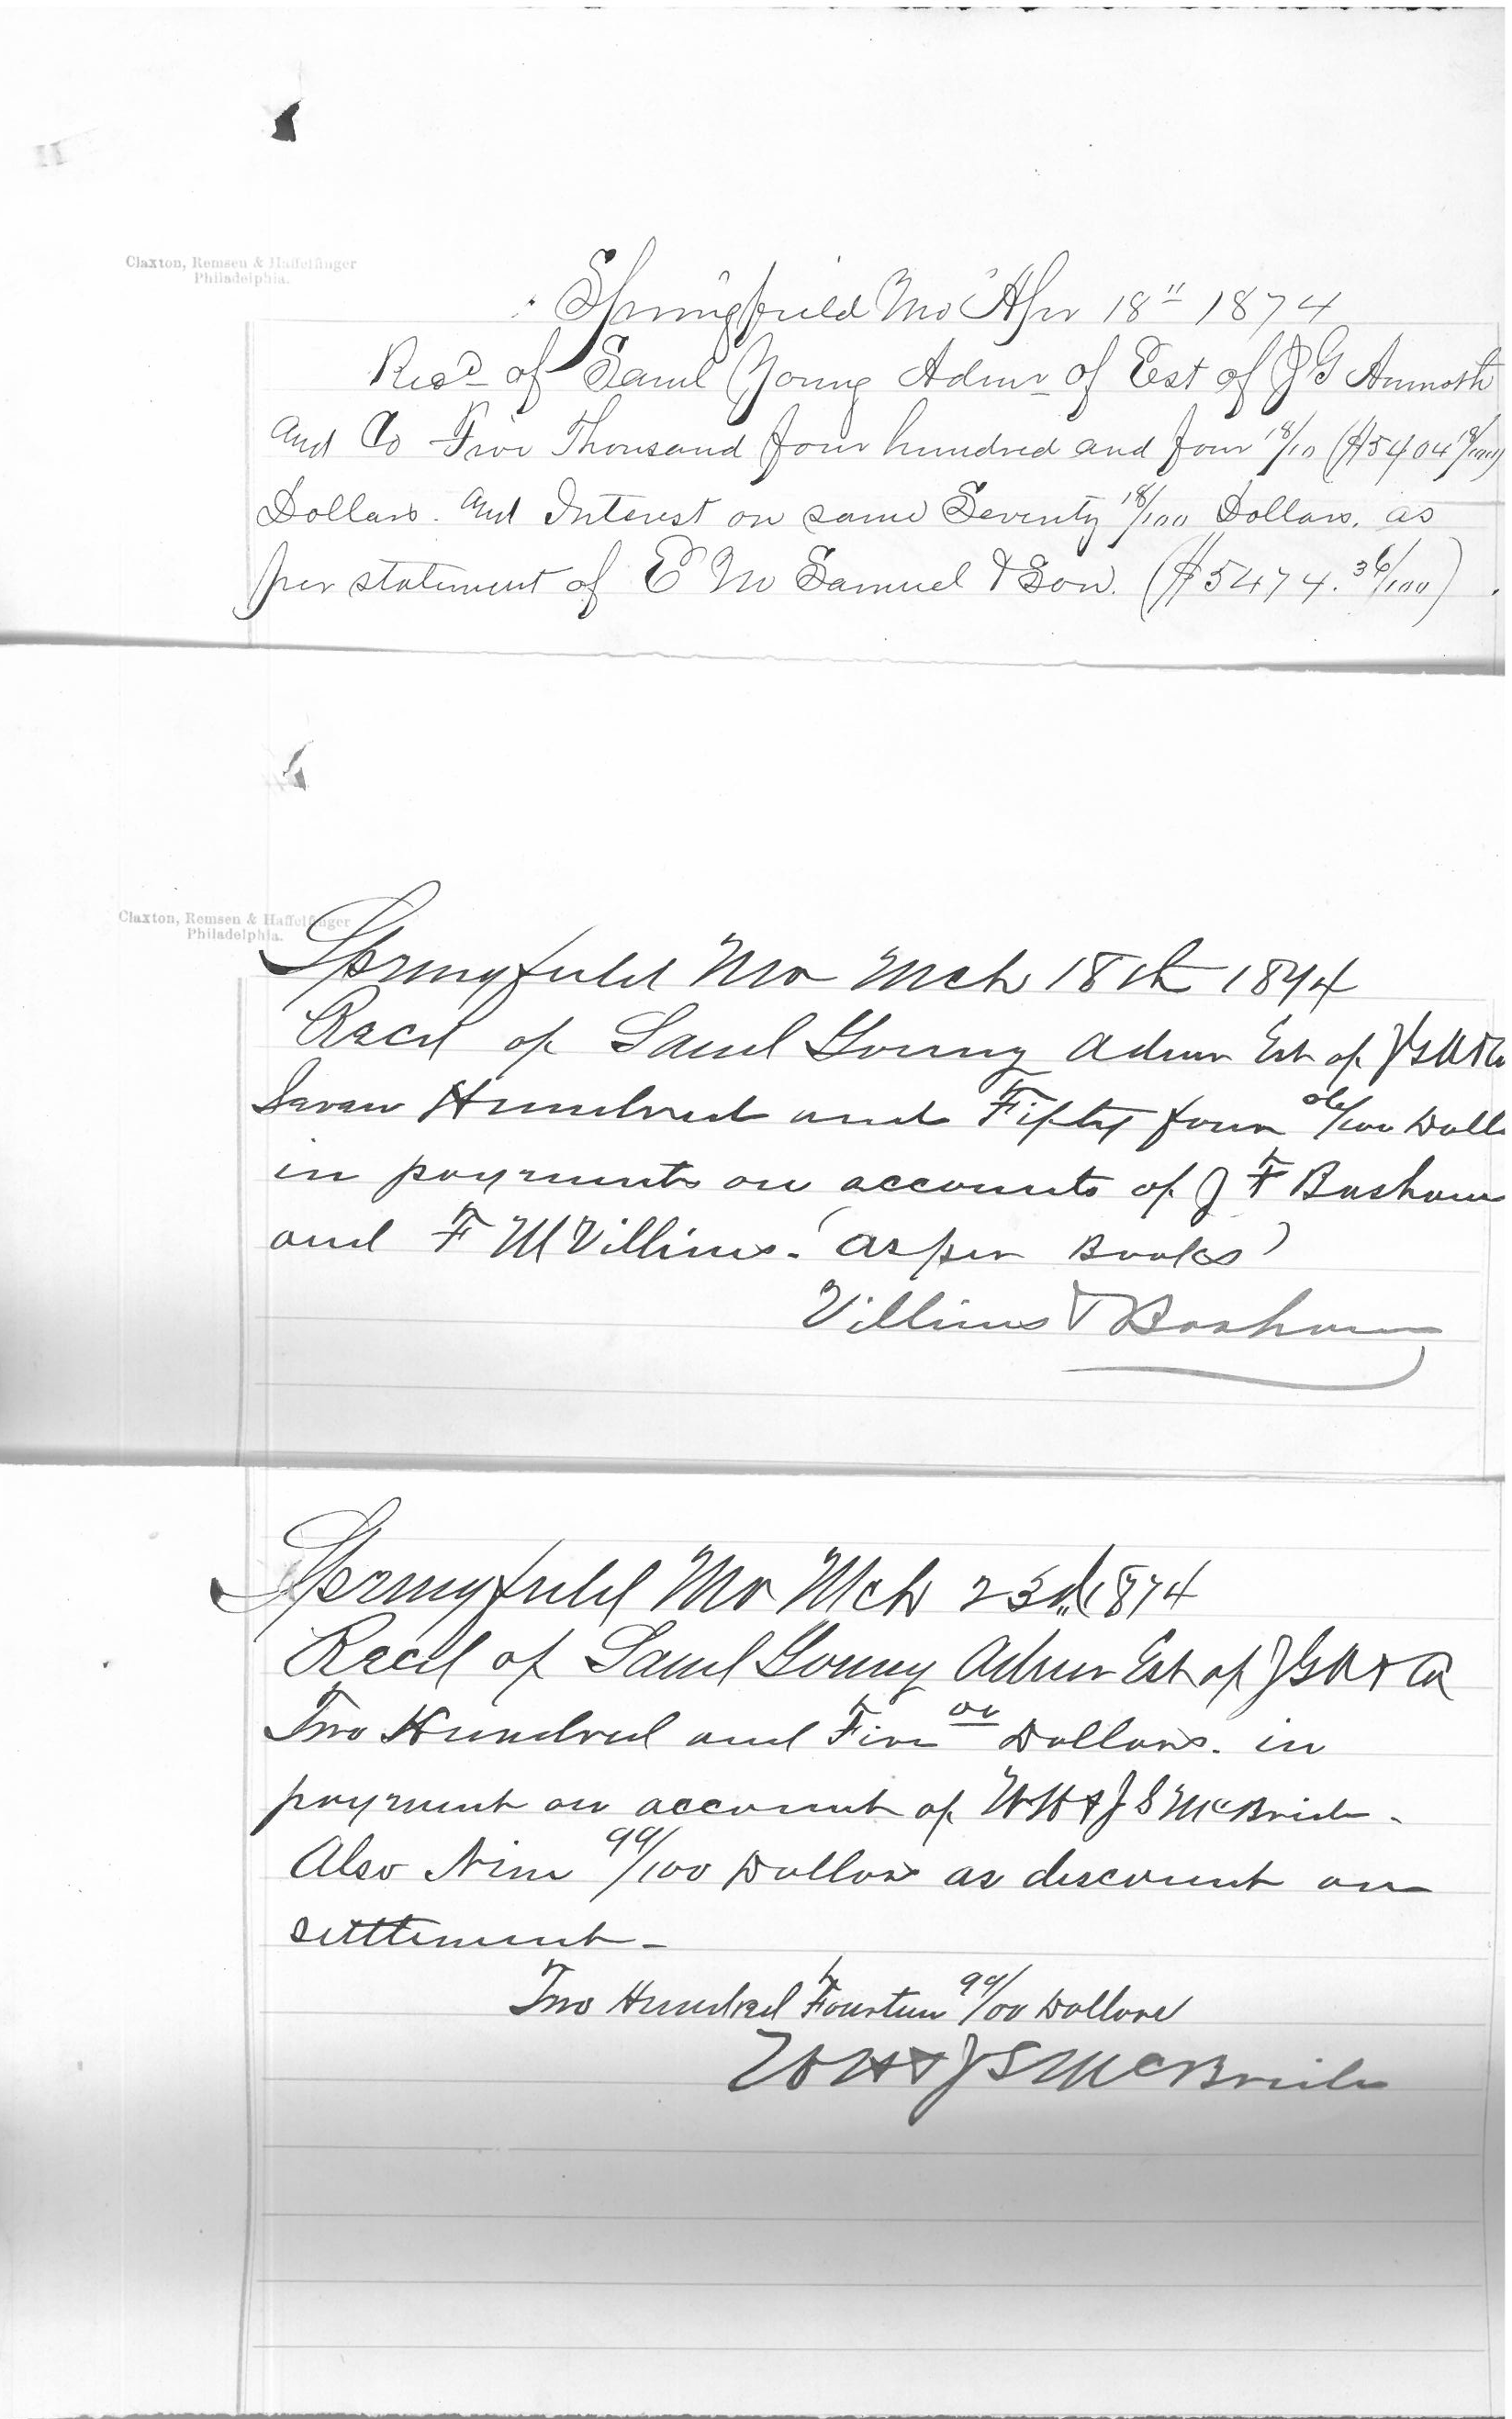 Claxton, Remsen & Haffelfinger
Philadelphia.
Springfield Mo Apr 18" 1874
Recd of Saml Young Admr of Est of J G
and Co Five Thousand four hundred and four 18/10 ($5404 18/100)
Dollars. and Interest on same Seventy 18/100 Dollars. as
per statement of E M Samuel & Son. ($5474.36/100).
Claxton, Remsen & Haffelfinger
Philadelphia.
Springfield Mo Mch 18th 1874
Recd of Saml Young Admr Est of J G A & Co
Seven Hundred and Fifty four 06/100 Dolls
in payments on accounts of J F Basham
and F M Villines. (as per Books)
Villines & Basham
Springfield Mo Mch 23d 1874
Recd of Saml Young Admr Est of J G A & Co
Two Hundred and Five 00 Dollars. in
payment on account of W H & J S McBride.
Also Nine 99/100 Dollars as discount on
settlement-
Two Hundred Fourteen 99/00 Dollars
W H & J S McBride